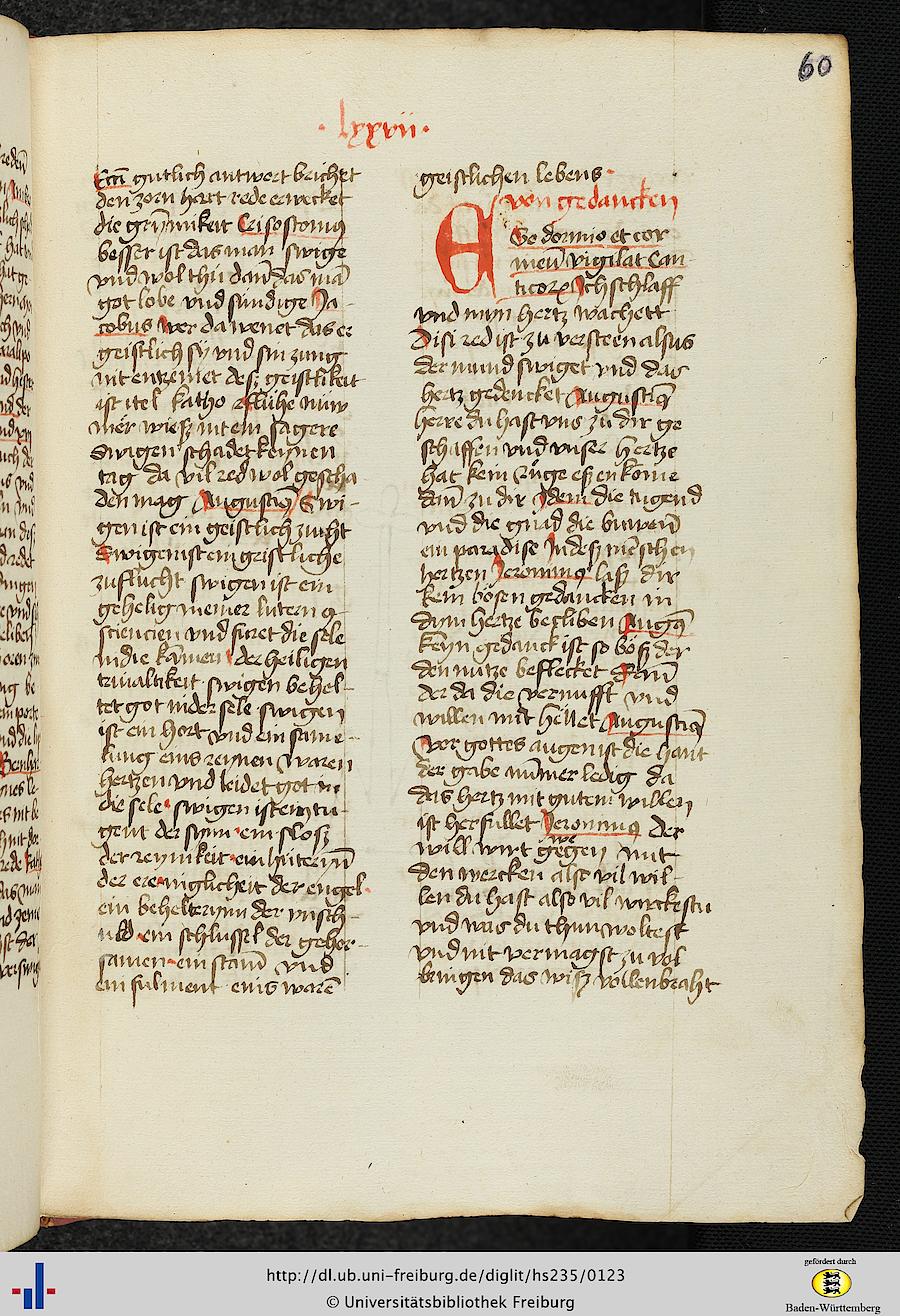 60
· lxxvii ·
gutlich antwort brichet
den zorn hert rede erwecket
die grymmkeit Crisostomus
besser ist das man swige
vnd wol thu dañ das mã
got lobe vnd sundige Ja-
cobus wer da wenet das er
geistlich sy vnd sin zung
nit entzemet desz geistlikeit
ist itel katho
mer wiesz nit ein sagere
swigen schadet keynen
tag da vil red wol gescha
den mag Augustin9 Swi-
gen ist ein geistlich zucht
Swigen ist ein geistliche
zuflucht swigen ist ein
gehelig meiner lutern 9-
sciencien vnd furet die sele
in die kamen der heiligen
triualtikeit swigen behel-
tet got in der sele swigen
ist ein hort vnd ein same-
lung eins reynen waren
hertzen vnd leidet got in
die sele swigen ist ein tu-
gent der synn ein slosz
der reynikeit ein huterynn
der ere niglicheit der engel
ein behelterynn der vnsch-
uld ein schlussel der gehor-
samen ein stam vnd
ein fulment eins warē
geistlichen lebens
von gedancken
EGo dormio et cor
meū vigilat Can-
ticorum Ich schlaff
vnd myn hertz wachett
Disi red ist zu versteen alsus
der mund swiget vnd das
hertz gedencket Augustin9
herre du hast vns zu dir ge
schaffen vnd vnser hertze
hat kein ruge esz enkome
dañ zu dir Idem die tugend
vnd die gnad die buwent
ein paradise In desz menschen
hertzen Jeronimus lasz dir
kein bosen gedancken in
dym hertze becliben Aug9
keyn gedanck ist so bosz der
den nutze beflecket
der da die vernufft vnd
willen mit hellet Augustin9
vor gottes augen ist die hant
der gabe nummer ledig da
das hertz mit gutem willen
ist herfullet Jeronimus der
will wirt gewegen mit
den wercken also vil wil-
len du hast also vil wirckestu
vnd was du thun woltest
vnd nit vermagst zu vol
bringen das wisz vollenbraht
http://dl.ub.uni-freiburg.de/diglit/hs235/0123
© Universitätsbibliothek Freiburg
gefördert durch
Baden-Württemberg